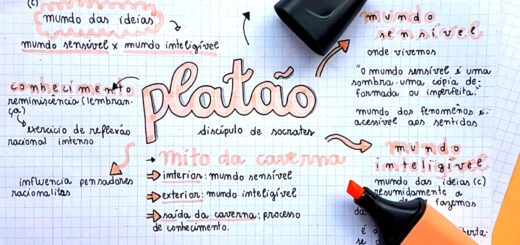 (c)
mundo das ideias
mundo sensível x mundo inteligível
conhecimento
reminiscência (lembran-
ça)
exercício de reflexão
racional intenso
influencia pensadores
racionalitas
platão
discípulo de socrates
mito da caverna
interior: mundo sensível
exterior: mundo inteligível
saída da caverna: processo
de conhecimento.
mundo
sensível
onde vivemos
"O mundo sensível é uma
sombra, uma cópia de-
formada ou imperfeita."
mundo dos fenomênos e
acessível aos sentidos
mundo
inteligível
mundo das ideias (c)
resumidamente a
fazemos